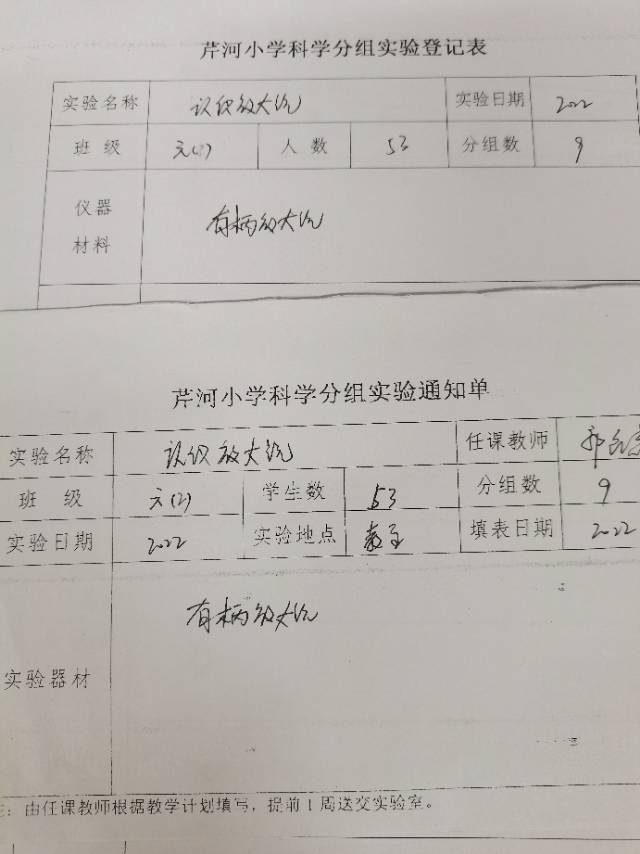 芹河小学科学分组实验登记表
实验名称 认识放大镜 实验日期 2022
班级 六(2) 人数 53 分组数 9
仪器
材料 有柄放大镜
芹河小学科学分组实验通知单
实验名称 认识放大镜 任课教师 郭
班级 六(2) 学生数 53 分组数 9
实验日期 2022 实验地点 教室 填表日期 2022
实验器材 有柄放大镜
：由任课教师根据教学计划填写，提前1周送交实验室。